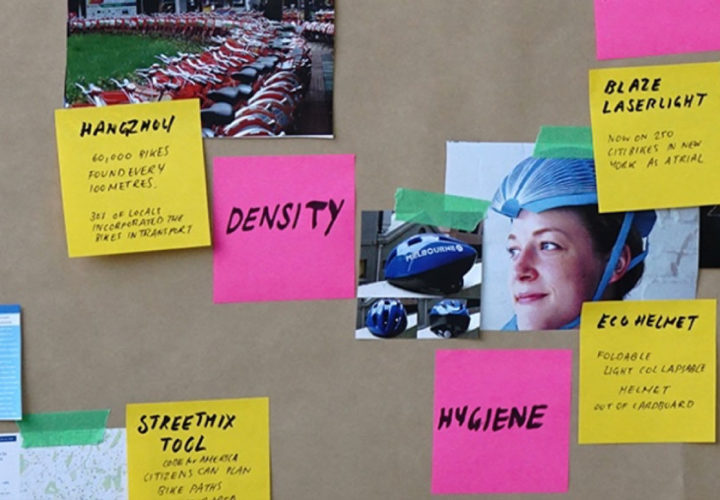 HANGZHOU
60,000 BIKES
FOUND EVERY
100 METRES.
30% OF LOCALS
INCORPORATED THE
BIKES IN TRANSPORT
DENSITY
BLAZE
LASERLIGHT
NOW ON 250
CITIBIKES IN NEW
YORK AS A TRIAL
MELBOURNE
ECO HELMET
FOLDABLE
LIGHT COLLAPSABLE
HELMET
OUT OF CARDBOARD
HYGIENE
STREETMIX
TOOL
CODE for AMERICA
CITIZENS CAN PLAN
BIKE PATHS